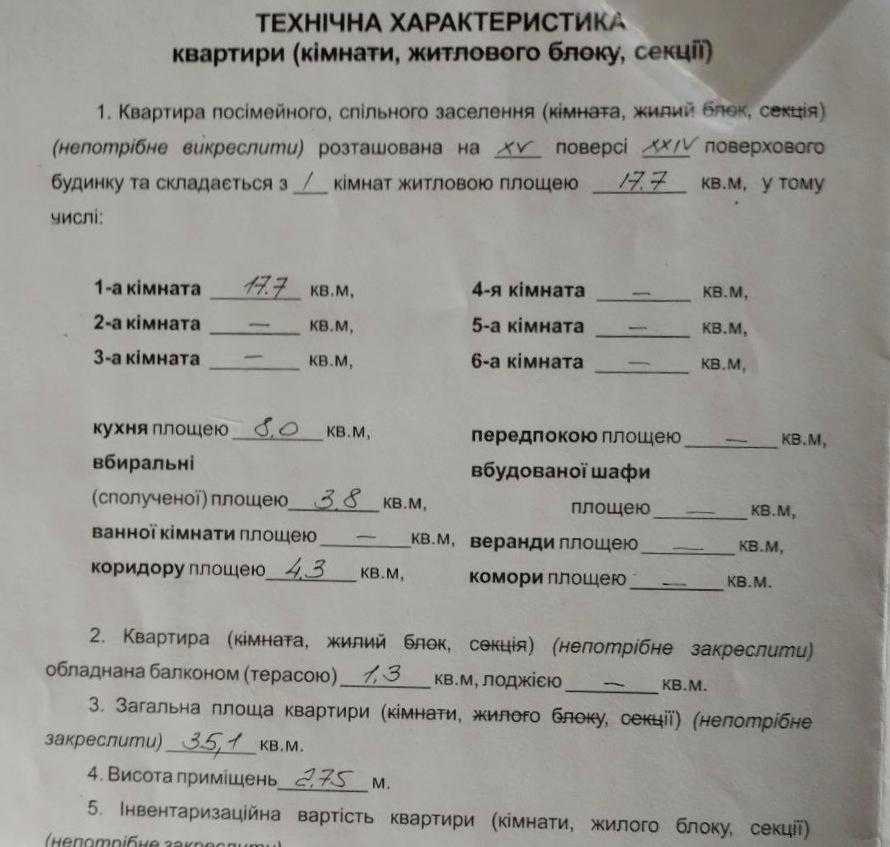 ТЕХНІЧНА ХАРАКТЕРИСТИКА
квартири (кімнати, житлового блоку, секції)
1. Квартира посімейного, спільного заселення (кімната, жилий блок, секція)
(непотрібне викреслити) розташована на XV поверсі XXIV поверхового
будинку та складається з 1 кімнат житловою площею 17.7 кв.м, у тому
числі:
1-а кімната 17.7 кв.м, 4-я кімната — кв.м,
2-а кімната — кв.м, 5-а кімната — кв.м,
3-а кімната — кв.м, 6-а кімната — кв.м,
кухня площею 8,0 кв.м, передпокою площею — кв.м,
вбиральні вбудованої шафи
(сполученої) площею 3,8 кв.м, площею — кв.м,
ванної кімнати площею — кв.м, веранди площею — кв.м,
коридору площею 4,3 кв.м, комори площею — кв.м.
2. Квартира (кімната, жилий блок, секція) (непотрібне закреслити)
обладнана балконом (терасою) 1,3 кв.м, лоджією — кв.м.
3. Загальна площа квартири (кімнати, жилого блоку, секції) (непотрібне
закреслити) 35,1 кв.м.
4. Висота приміщень 2,75 м.
5. Інвентаризаційна вартість квартири (кімнати, жилого блоку, секції)
(непотрібне закреслити)